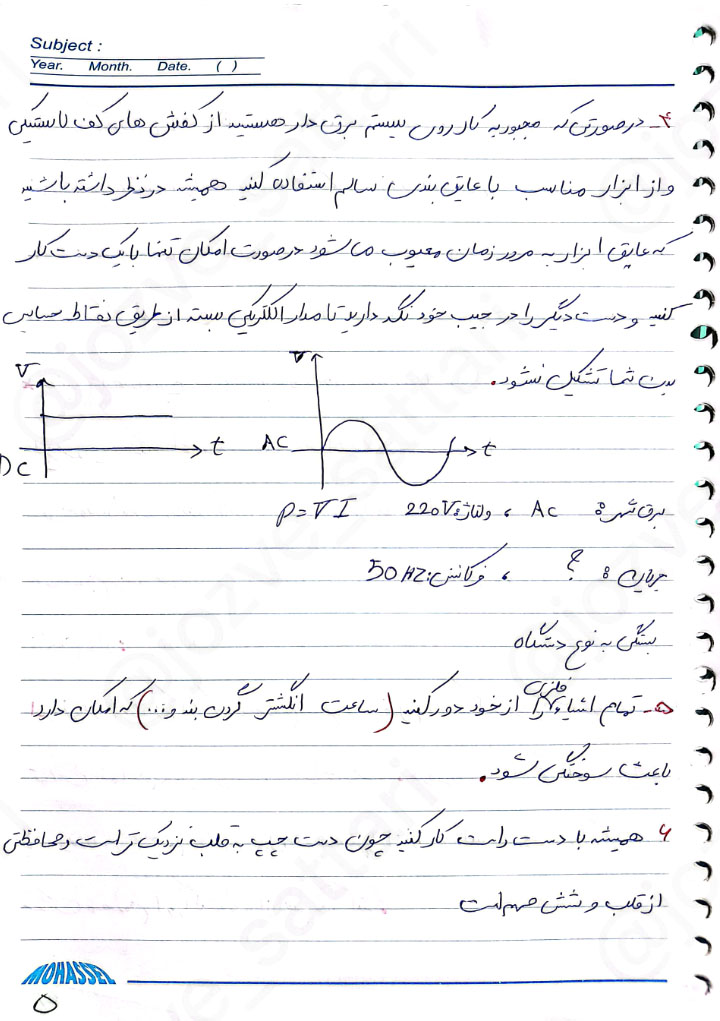 Subject :
Year. Month. Date. ( )
۴- درصورتی که مجبور به کار روی سیستم برق دار هستید از کفش های کف لاستیکی
و از ابزار مناسب با عایق بندی سالم استفاده کنید همیشه در نظر داشته باشید
که عایق ابزار به مرور زمان معیوب می شود درصورت امکان تنها با یک دست کار
کنید و دست دیگر را در جیب خود نگه دارید تا مدار الکتریکی بسته از طریق نقاط حساس
بدن شما تشکیل نشود.
V
t
DC
V
AC
t
برق شهر: AC ، ولتاژ: 220V P=VI
جریان: ؟ ، فرکانس: 50HZ
بستگی به نوع دستگاه
۵- تمام اشیاء فلزی را از خود دور کنید (ساعت انگشتر گردن بند و...) که امکان دارد
باعث سوختگی شود.
۶ همیشه با دست راست کار کنید چون دست چپ به قلب نزدیک تر است و محافظتی
از قلب و شش مهم است
MOHASSEL
۵
@jozve_sattari